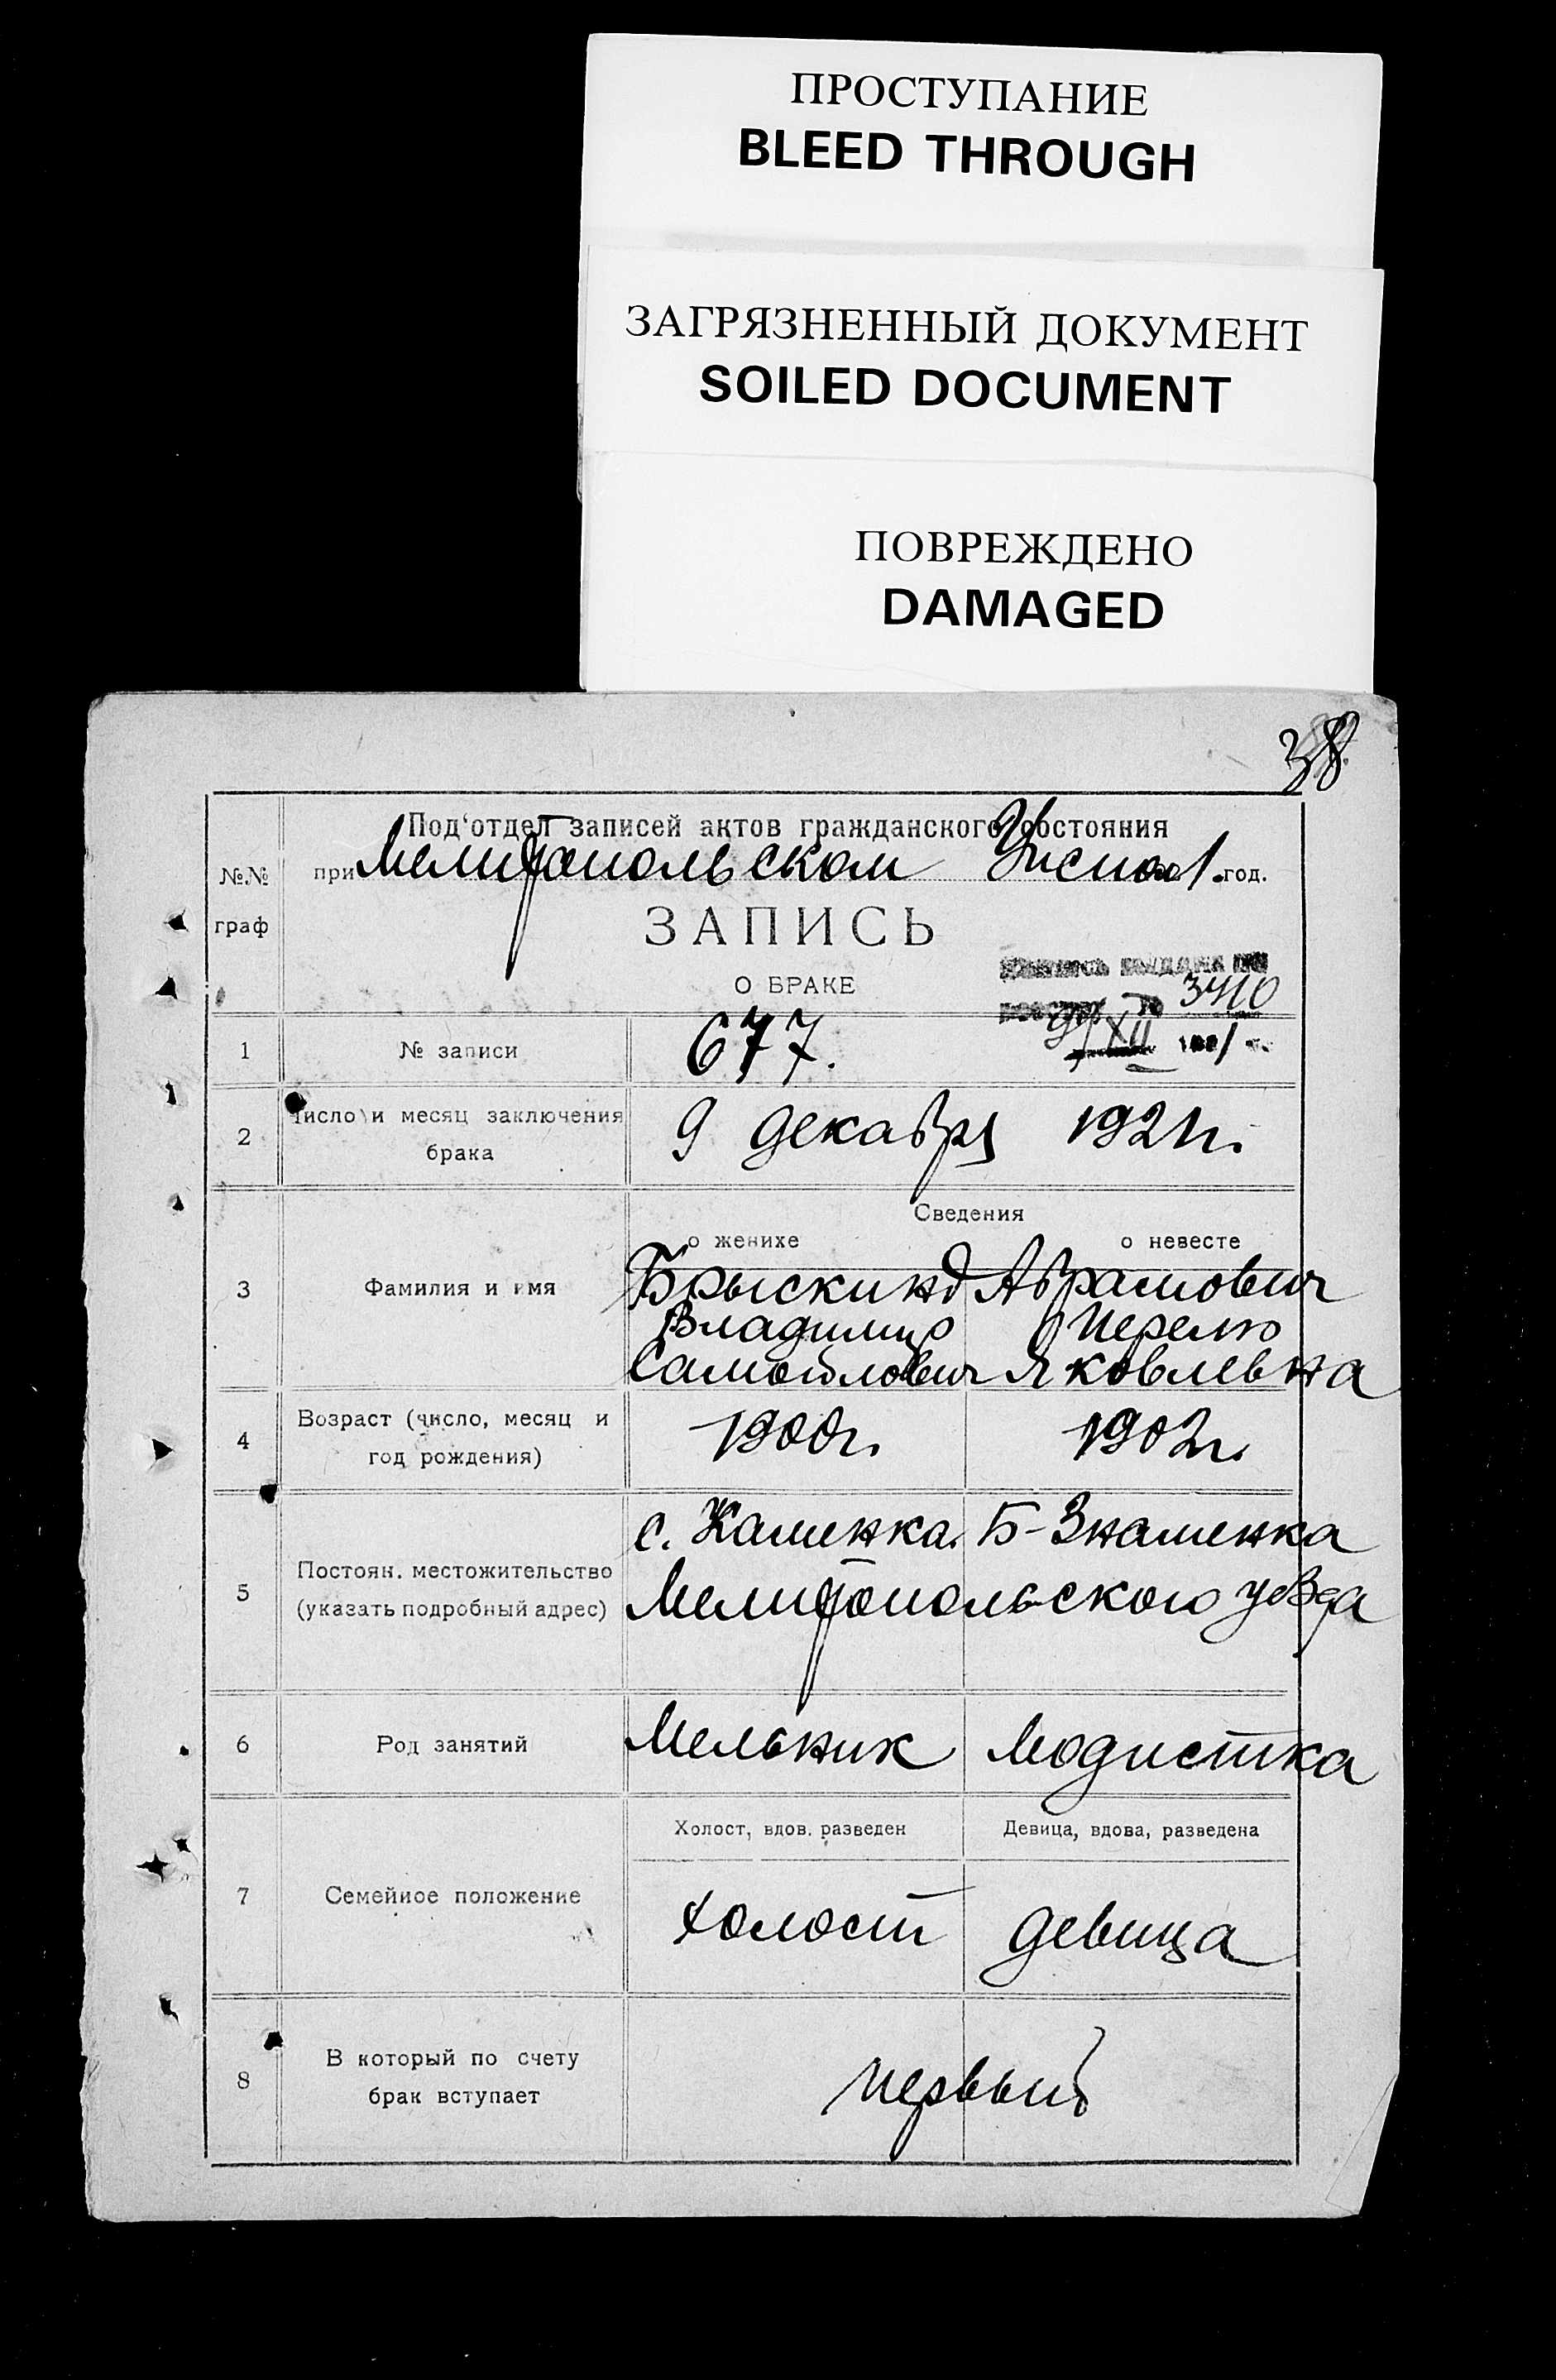 ПРОСТУПАНИЕ
BLEED THROUGH
ЗАГРЯЗНЕННЫЙ ДОКУМЕНТ
SOILED DOCUMENT
ПОВРЕЖДЕНО
DAMAGED
38
№№ граф
Под'отдел записей актов гражданского состояния
при Мелитопольском год.
ЗАПИСЬ
О БРАКЕ
3410
9/XII
1 № записи 677.
2 Число и месяц заключения брака 9 декабря 1921 г.
Сведения
о женихе о невесте
3 Фамилия и имя Брыскинд Абрамович
Владимир Перель
Самойлович Яковлевна
4 Возраст (число, месяц и год рождения) 1900 г. 1902 г.
5 Постоян. местожительство (указать подробный адрес) с. Каменка. Б-Знаменка
Мелитопольского уезда
6 Род занятий Мельник Модистка
Холост, вдов. разведен Девица, вдова, разведена
7 Семейное положение холост девица
8 В который по счету брак вступает первый